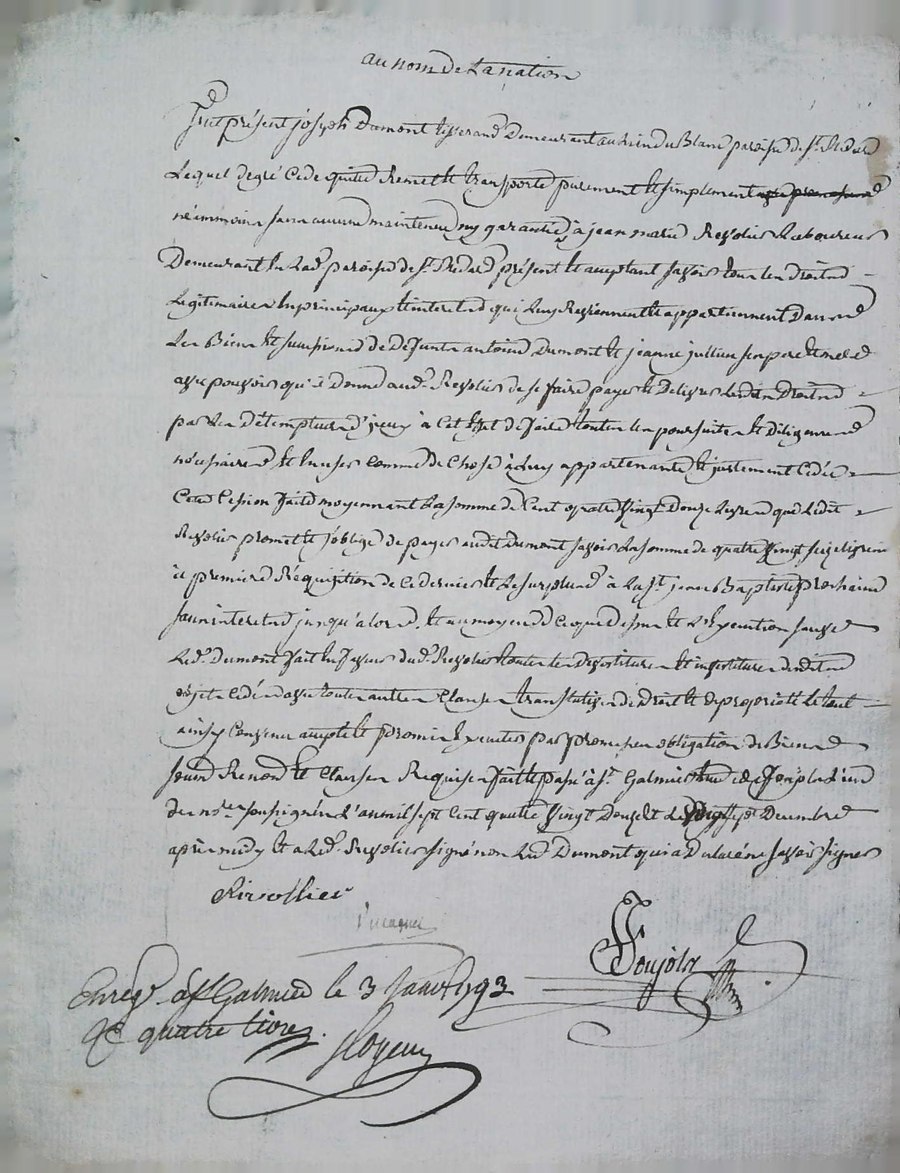 au nom de la nation
fut présent joseph Dumont tisserand Demeurant au lieu du Blanc paroisse de st. Medard
Lequel de gré Cede quitte Remet et transporte purement et simplement
néammoins sans aucune maintenue ny garantie à jean marie Revolier Laboureur
Demeurant en lad. paroisse de st. Medard présent et acceptant savoir tous les Droits
Legitimaires en principaux et interets qui luy Reviennent et appartiennent Dans
Les Biens et successions de Defunts antoine Dumont et jeanne jullien ses pere et mere
avec pouvoir qu'il donne aud. Revolier de se faire payer et Delivrer lesdits Droits
par les Détempteurs d'iceux à Cet effet de faire toutes les poursuites et Diligences
nécessaires et en user Comme de Chose à luy appartenante et justement Cédée
Cette Cession faite moyennant La somme de Cent quatre vingt Douze Livres que Ledit
Revolier promet et s'oblige de payer audit Dumont savoir La somme de quatre vingt seize livres
à première Réquisition de Ce dernier et Le surplus à La st. jean Baptiste prochaine
sans interets jusqu'alors, et au moyen de Ce que dessus et L'Execution sauve
Led. Dumont fait en faveur dud. Revolier toutes les Devetitures et investitures desdits
objets Cédés avec toutes autres Clauses translatives de Droit et de propriété Le tout
ainsy Convenu accepté et promis Executer par promesses obligation de Biens
soum Renons et Clauses Requises fait et passé à st. Galmier étude de Ponjola l'un
des nores. soussignés L'an mil sept Cent quatre vingt Douze et Le vingt sept Decembre
après midy et a Led. Revolier signé non Led. Dumont qui a Declaré ne savoir signer
Rivollier
Ponjola
Enreg. à st Galmier le 3 janv. 1793
R quatre livres.